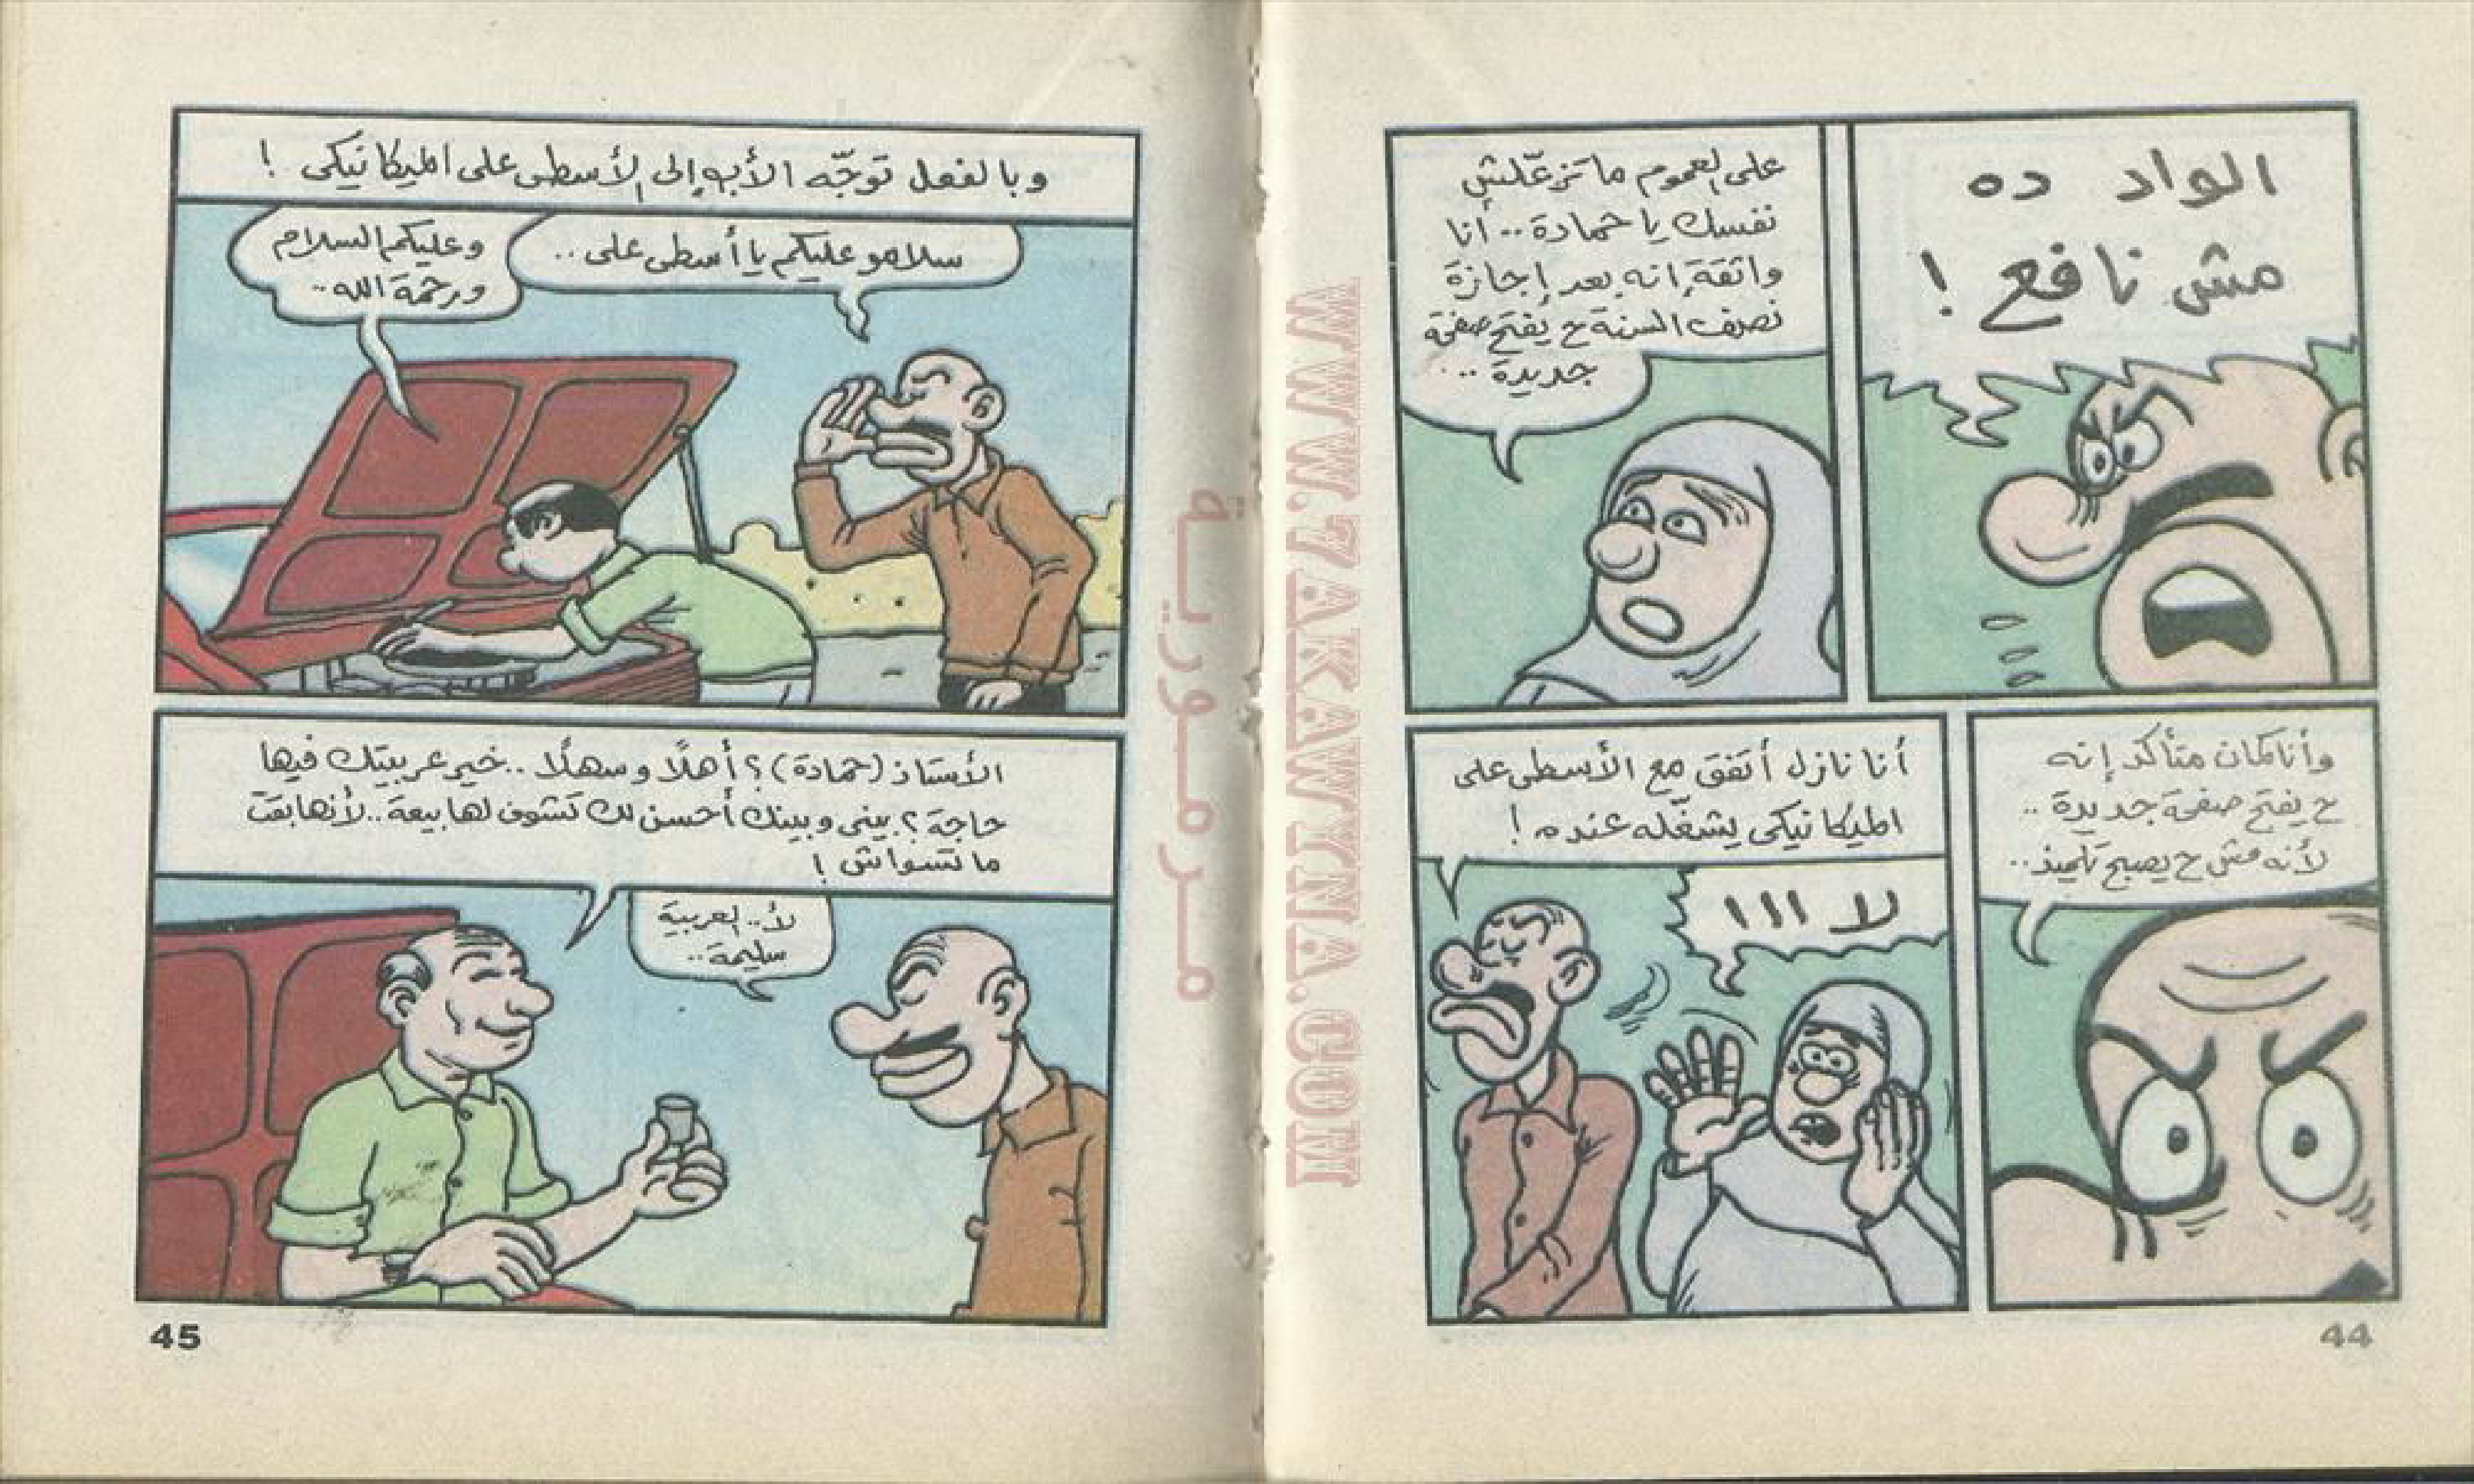 الواد ده
مش نافع !
على العموم ما تزعّلش
نفسك يا حمادة .. أنا
واثقة إنه بعد إجازة
نصف السنة ح يفتح صفحة
جديدة ..
وأنا كمان متأكد إنه
ح يفتح صفحة جديدة ..
لأنه مش ح يصبح تلميذ ..
أنا نازل أتفق مع الأسطى على
الميكانيكى يشغّله عنده !
لا ااا
44
وبالفعل توجّه الأب إلى الأسطى على الميكانيكى !
سلامو عليكم يا أسطى على ..
وعليكم السلام
ورحمة الله ..
الأستاذ (حمادة) ؟ أهلًا وسهلًا .. خير عربيتك فيها
حاجة ؟ بينى وبينك أحسن لك تشوف لها بيعة .. لأنها بقت
ما تسواش !
لأ .. العربية
سليمة ..
45
WWW.7AKAWYNA.COM
مرمورية